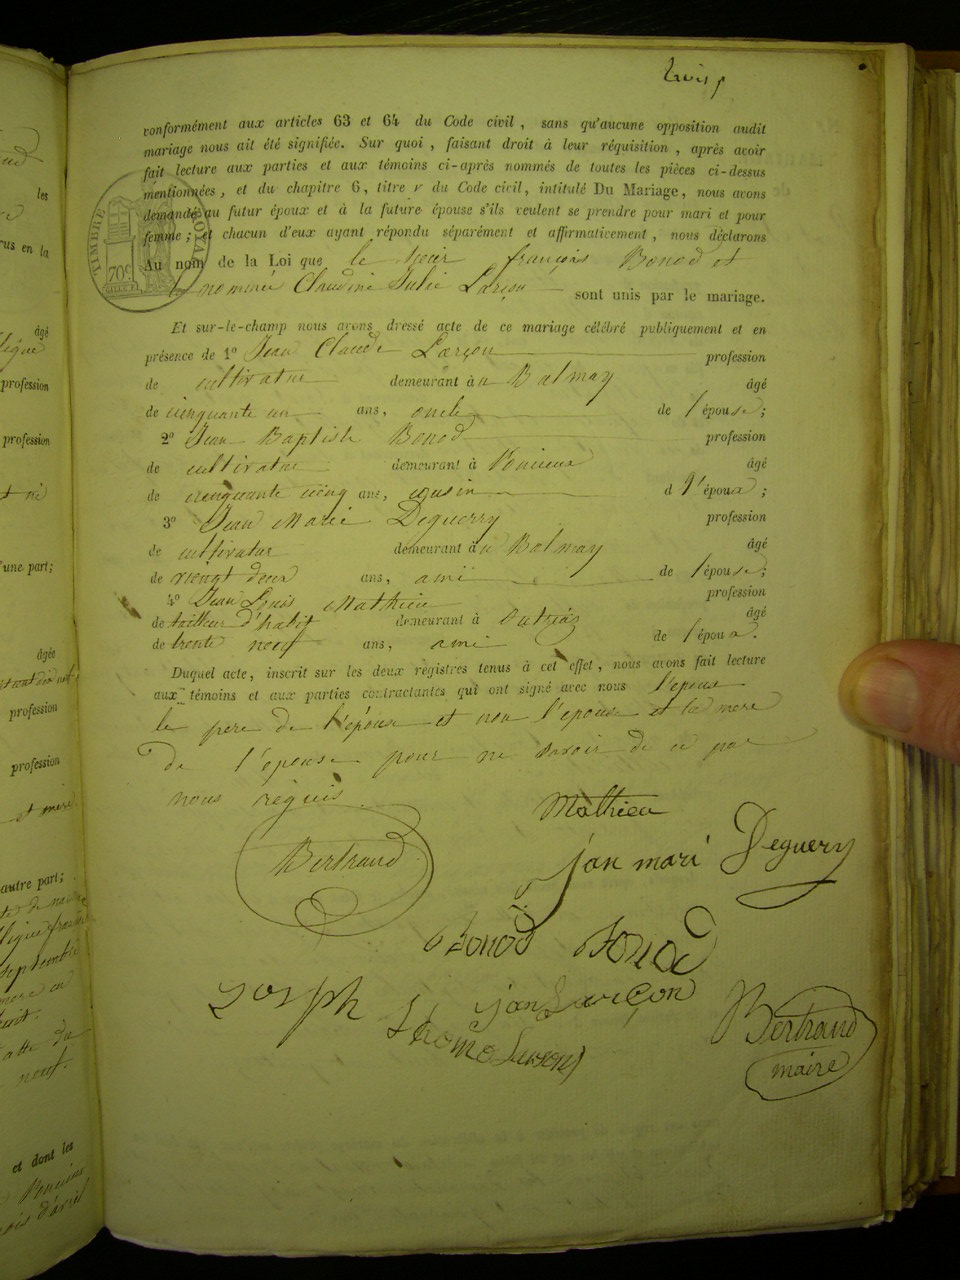 trois
conformément aux articles 63 et 64 du Code civil, sans qu'aucune opposition audit
mariage nous ait été signifiée. Sur quoi, faisant droit à leur réquisition, après avoir
fait lecture aux parties et aux témoins ci-après nommés de toutes les pièces ci-dessus
mentionnées, et du chapitre 6, titre v du Code civil, intitulé Du Mariage, nous avons
demandé au futur époux et à la future épouse s'ils veulent se prendre pour mari et pour
femme ; et chacun d'eux ayant répondu séparément et affirmativement, nous déclarons
Au nom de la Loi que le sieur françois Bonod et
la nominée Claudine Julie Larçon sont unis par le mariage.
TIMBRE ROYAL 70c
Et sur-le-champ nous avons dressé acte de ce mariage célébré publiquement et en
présence de 1º Jean Claude Larçon profession
de cultivateur demeurant à Balmay âgé
de cinquante un ans, oncle de l'épouse ;
2º Jean Baptiste Bonod profession
de cultivateur demeurant à Poncieux âgé
de cinquante cinq ans, cousin d l'époux ;
3º Jean Marie Deguerry profession
de cultivateur demeurant à Balmay âgé
de vieingt deux ans, ami de l'épouse ;
4º Jean Louis Mathieu profession
de tailleur d'habit demeurant à Outriaz âgé
de trente neuf ans, ami de l'époux.
Duquel acte, inscrit sur les deux registres tenus à cet effet, nous avons fait lecture
aux témoins et aux parties contractantes qui ont signé avec nous l'epoux
le père de l'épouse et non l'epouse et la mere
de l'épouse pour ne savoir de ce par
nous réquis
Mathieu
Bertraud
jan mari Deguery
Bonod Bonod
Joseph jan Larçon
Larson
Bertraud
maire
les
âgé
profession
profession
'une part ;
âgée
profession
profession
et mère
autre part ;
septembre
et dont les